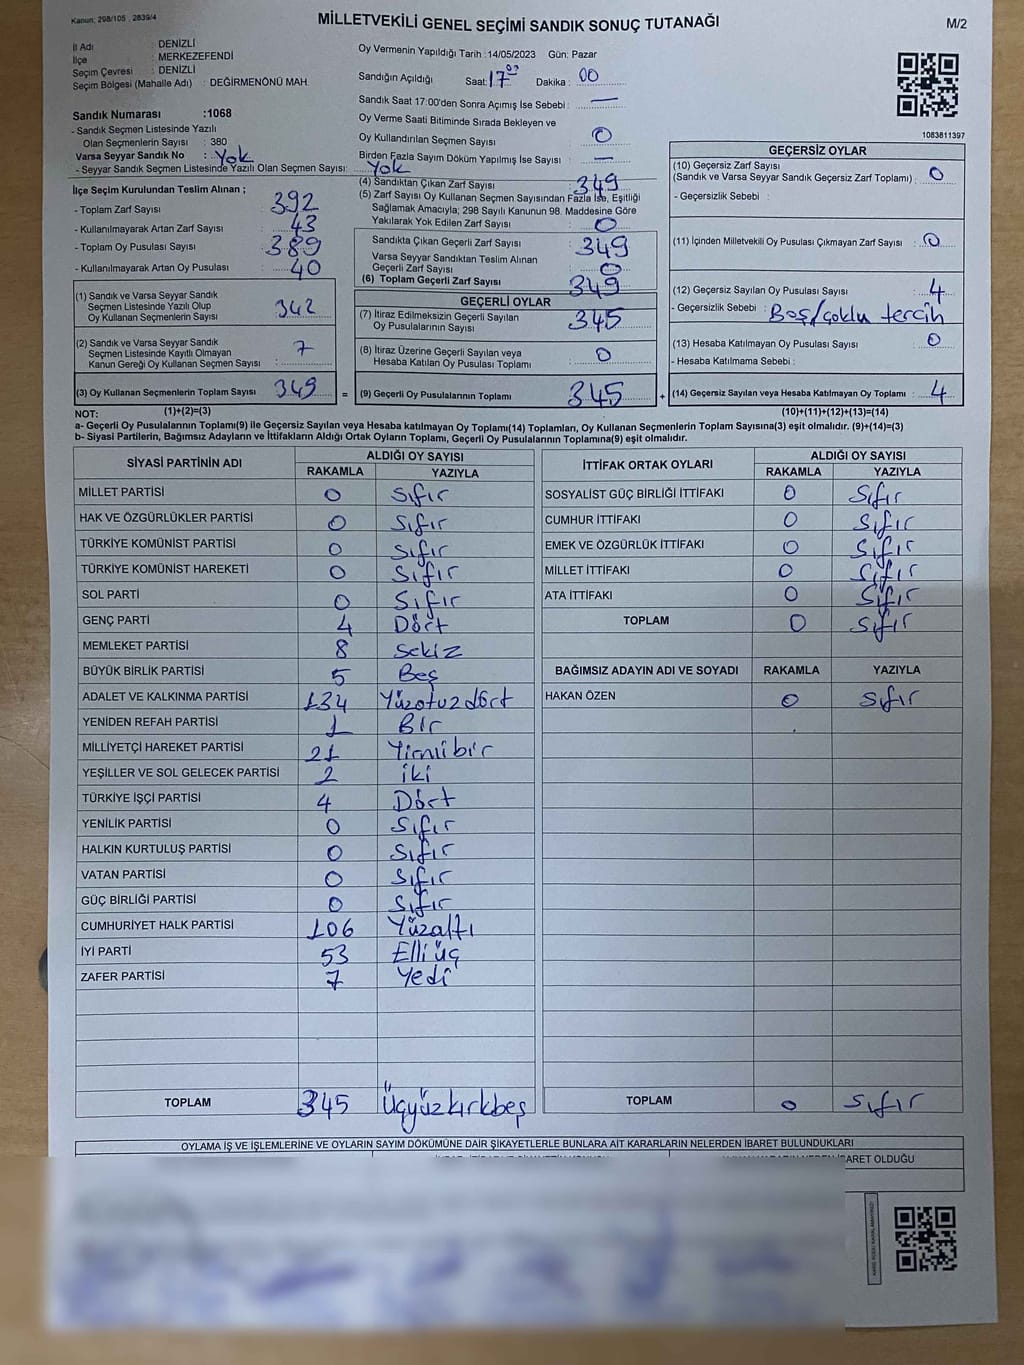 Kanun; 298/105 , 2839/4
MİLLETVEKİLİ GENEL SEÇİMİ SANDIK SONUÇ TUTANAĞI
M/2
İl Adı : DENİZLİ
İlçe : MERKEZEFENDİ
Seçim Çevresi : DENİZLİ
Seçim Bölgesi (Mahalle Adı) : DEĞİRMENÖNÜ MAH.
Sandık Numarası :1068
- Sandık Seçmen Listesinde Yazılı
Olan Seçmenlerin Sayısı : 380
Varsa Seyyar Sandık No : Yok
- Seyyar Sandık Seçmen Listesinde Yazılı Olan Seçmen Sayısı: Yok
Oy Vermenin Yapıldığı Tarih :14/05/2023 Gün: Pazar
Sandığın Açıldığı Saat: 17⁰⁰ Dakika : 00
Sandık Saat 17:00'den Sonra Açımış İse Sebebi : —
Oy Verme Saati Bitiminde Sırada Bekleyen ve
Oy Kullandırılan Seçmen Sayısı : 0
Birden Fazla Sayım Döküm Yapılmış İse Sayısı : —
1083811397
İlçe Seçim Kurulundan Teslim Alınan ;
- Toplam Zarf Sayısı : 392
- Kullanılmayarak Artan Zarf Sayısı : 43
- Toplam Oy Pusulası Sayısı : 389
- Kullanılmayarak Artan Oy Pusulası : 40
(1) Sandık ve Varsa Seyyar Sandık
Seçmen Listesinde Yazılı Olup
Oy Kullanan Seçmenlerin Sayısı : 342
(2) Sandık ve Varsa Seyyar Sandık
Seçmen Listesinde Kayıtlı Olmayan
Kanun Gereği Oy Kullanan Seçmen Sayısı : 7
(3) Oy Kullanan Seçmenlerin Toplam Sayısı : 349 =
(4) Sandıktan Çıkan Zarf Sayısı : 349
(5) Zarf Sayısı Oy Kullanan Seçmen Sayısından Fazla İse, Eşitliği
Sağlamak Amacıyla; 298 Sayılı Kanunun 98. Maddesine Göre
Yakılarak Yok Edilen Zarf Sayısı : 0
Sandıkta Çıkan Geçerli Zarf Sayısı : 349
Varsa Seyyar Sandıktan Teslim Alınan
Geçerli Zarf Sayısı : 0
(6) Toplam Geçerli Zarf Sayısı : 349
GEÇERLİ OYLAR
(7) İtiraz Edilmeksizin Geçerli Sayılan
Oy Pusulalarının Sayısı : 345
(8) İtiraz Üzerine Geçerli Sayılan veya
Hesaba Katılan Oy Pusulası Toplamı : 0
(9) Geçerli Oy Pusulalarının Toplamı : 345 +
GEÇERSİZ OYLAR
(10) Geçersiz Zarf Sayısı
(Sandık ve Varsa Seyyar Sandık Geçersiz Zarf Toplamı) : 0
- Geçersizlik Sebebi :
(11) İçinden Milletvekili Oy Pusulası Çıkmayan Zarf Sayısı : 0
(12) Geçersiz Sayılan Oy Pusulası Sayısı : 4
- Geçersizlik Sebebi : Boş/çoklu tercih
(13) Hesaba Katılmayan Oy Pusulası Sayısı : 0
- Hesaba Katılmama Sebebi :
(14) Geçersiz Sayılan veya Hesaba Katılmayan Oy Toplamı : 4
NOT: (1)+(2)=(3) (10)+(11)+(12)+(13)=(14)
a- Geçerli Oy Pusulalarının Toplamı(9) ile Geçersiz Sayılan veya Hesaba katılmayan Oy Toplamı(14) Toplamları, Oy Kullanan Seçmenlerin Toplam Sayısına(3) eşit olmalıdır. (9)+(14)=(3)
b- Siyasi Partilerin, Bağımsız Adayların ve İttifakların Aldığı Ortak Oyların Toplamı, Geçerli Oy Pusulalarının Toplamına(9) eşit olmalıdır.
SİYASİ PARTİNİN ADI ALDIĞI OY SAYISI
RAKAMLA YAZIYLA
MİLLET PARTİSİ 0 Sıfır
HAK VE ÖZGÜRLÜKLER PARTİSİ 0 Sıfır
TÜRKİYE KOMÜNİST PARTİSİ 0 Sıfır
TÜRKİYE KOMÜNİST HAREKETİ 0 Sıfır
SOL PARTİ 0 Sıfır
GENÇ PARTİ 4 Dört
MEMLEKET PARTİSİ 8 sekiz
BÜYÜK BİRLİK PARTİSİ 5 Beş
ADALET VE KALKINMA PARTİSİ 134 Yüzotuzdört
YENİDEN REFAH PARTİSİ 1 Bir
MİLLİYETÇİ HAREKET PARTİSİ 21 Yirmibir
YEŞİLLER VE SOL GELECEK PARTİSİ 2 iki
TÜRKİYE İŞÇİ PARTİSİ 4 Dört
YENİLİK PARTİSİ 0 Sıfır
HALKIN KURTULUŞ PARTİSİ 0 Sıfır
VATAN PARTİSİ 0 Sıfır
GÜÇ BİRLİĞİ PARTİSİ 0 Sıfır
CUMHURİYET HALK PARTİSİ 106 Yüzaltı
İYİ PARTİ 53 Elliüç
ZAFER PARTİSİ 7 Yedi
TOPLAM 345 Üçyüzkırkbeş
İTTİFAK ORTAK OYLARI ALDIĞI OY SAYISI
RAKAMLA YAZIYLA
SOSYALİST GÜÇ BİRLİĞİ İTTİFAKI 0 Sıfır
CUMHUR İTTİFAKI 0 Sıfır
EMEK VE ÖZGÜRLÜK İTTİFAKI 0 Sıfır
MİLLET İTTİFAKI 0 Sıfır
ATA İTTİFAKI 0 Sıfır
TOPLAM 0 Sıfır
BAĞIMSIZ ADAYIN ADI VE SOYADI RAKAMLA YAZIYLA
HAKAN ÖZEN 0 sıfır
TOPLAM 0 sıfır
OYLAMA İŞ VE İŞLEMLERİNE VE OYLARIN SAYIM DÖKÜMÜNE DAİR ŞİKAYETLERLE BUNLARA AİT KARARLARIN NELERDEN İBARET BULUNDUKLARI
İBARET OLDUĞU